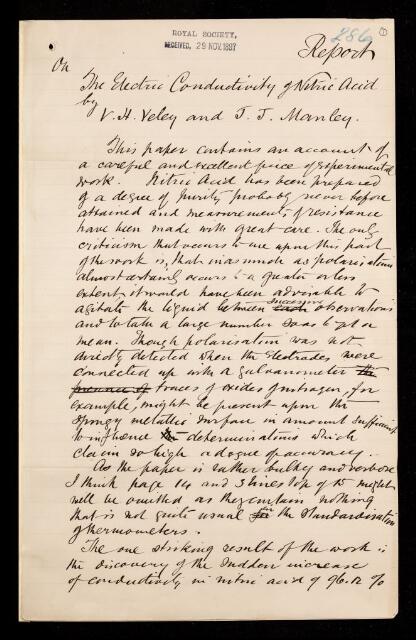 ROYAL SOCIETY,
RECEIVED, 29 NOV. 1897
286 1
Report
On
The Electric Conductivity of Nitric Acid
by
V. H. Veley and J. J. Manley.
This paper contains an account of
a careful and excellent piece of experimental
work. Nitric Acid has been prepared
of a degree of purity probably never before
attained and measurements of resistance
have been made with great care. The only
criticism that occurs to me upon this part
of the work is, that inasmuch as polarisation
almost certainly occurs to a greater or less
extent it would have been advisable to
agitate the liquid between each successive observations
and to take a large number so as to get a
mean. Though polarisation was not
directly detected when the electrodes were
connected up with a galvanometer the
presence of traces of oxides of nitrogen, for
example, might be present upon the
spongy metallic surface in amount sufficient
to influence the determinations which
claim so high a degree of accuracy.
As the paper is rather bulky and verbose
I think page 14 and 3 lines top of 15 might
well be omitted as they contain nothing
that is not quite usual for in the standardisation
of thermometers.
The one striking result of the work is
the discovery of the sudden increase
of conductivity in nitric acid of 96.12 %